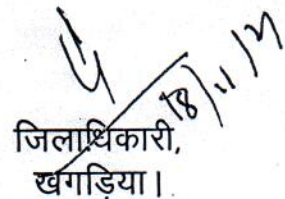 18/11/
जिलाधिकारी,
खगड़िया।